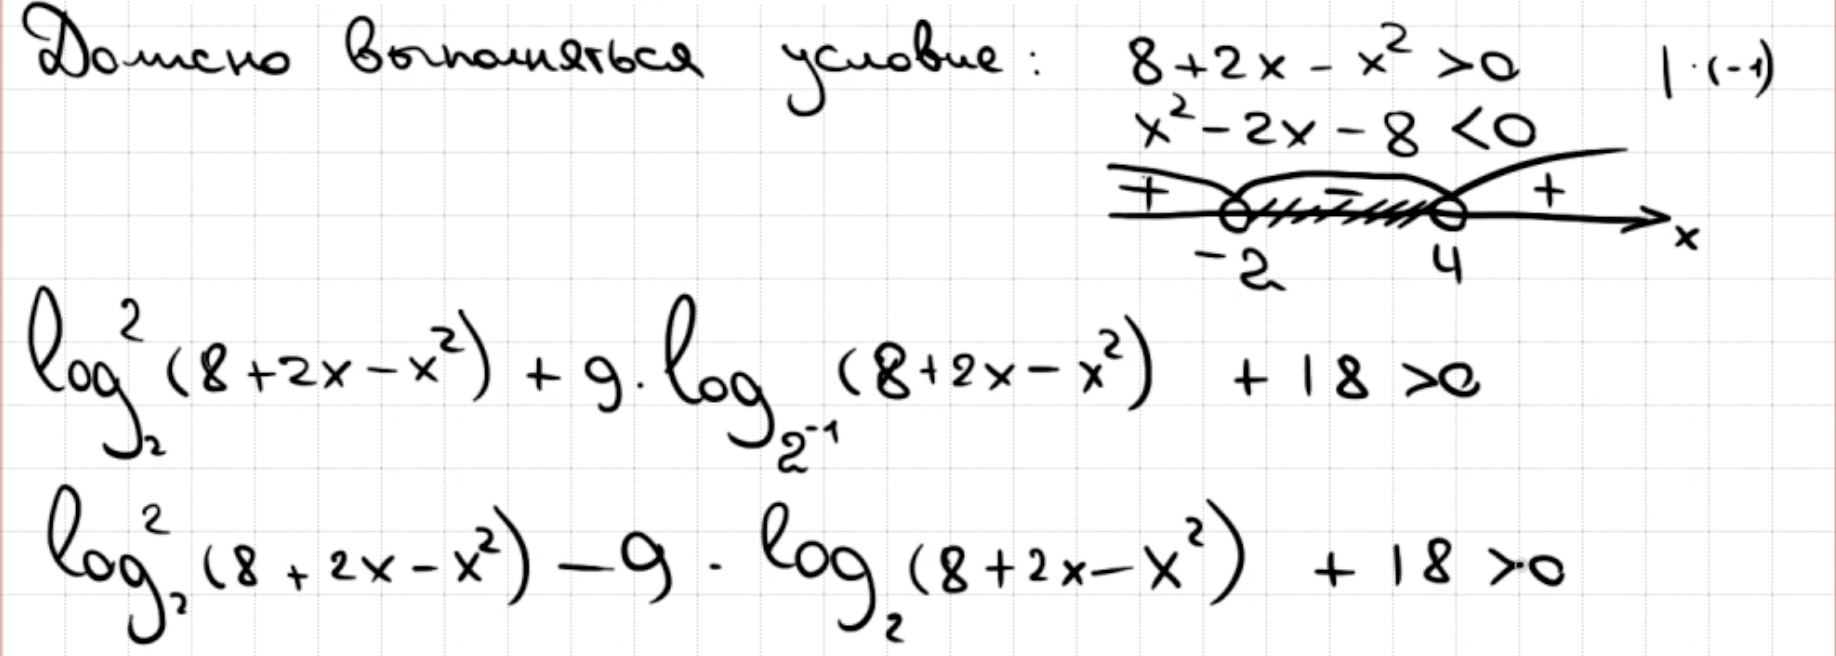 Должно выполняться условие: 8+2x-x²>0 |·(-1)
x²-2x-8<0
+ - +
-2 4 x
log₂²(8+2x-x²)+9·log₂₋₁(8+2x-x²)+18>0
log₂²(8+2x-x²)-9·log₂(8+2x-x²)+18>0